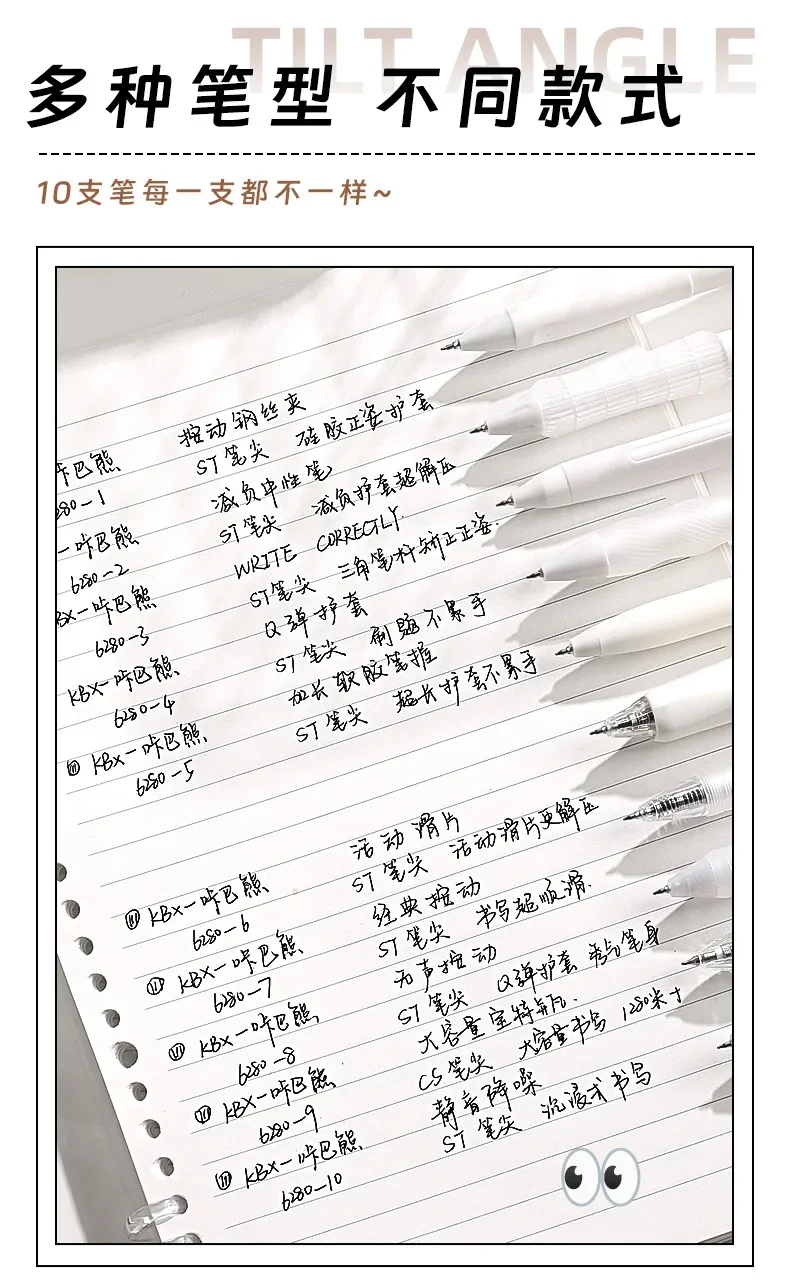 TILT ANGLE
多种笔型 不同款式
10支笔每一支都不一样~
按动钢丝夹
卡巴熊 ST笔尖 硅胶正姿护套
280-1 减负中性笔
一咔巴熊 ST笔尖 减负护套超解压
6280-2 WRITE CORRECTLY
BX一咔巴熊 ST笔尖 三角笔杆矫正正姿.
6280-3 Q弹护套
KBX一咔巴熊 ST笔尖 刷题不累手
6280-4 加长软胶笔握
KBX一咔巴熊 ST笔尖 超长护套不累手
6280-5
活动滑片
KBX一咔巴熊 ST笔尖 活动滑片更解压
6280-6 经典按动
KBX一咔巴熊 ST笔尖 书写超顺滑.
6280-7 无声按动
KBX一咔巴熊 ST笔尖 Q弹护套 笔身
6280-8 大容量
KBX一咔巴熊 CS笔尖 大容量书写 1280米
6280-9 静音降噪
KBX一咔巴熊 ST笔尖 沉浸式书写
6280-10